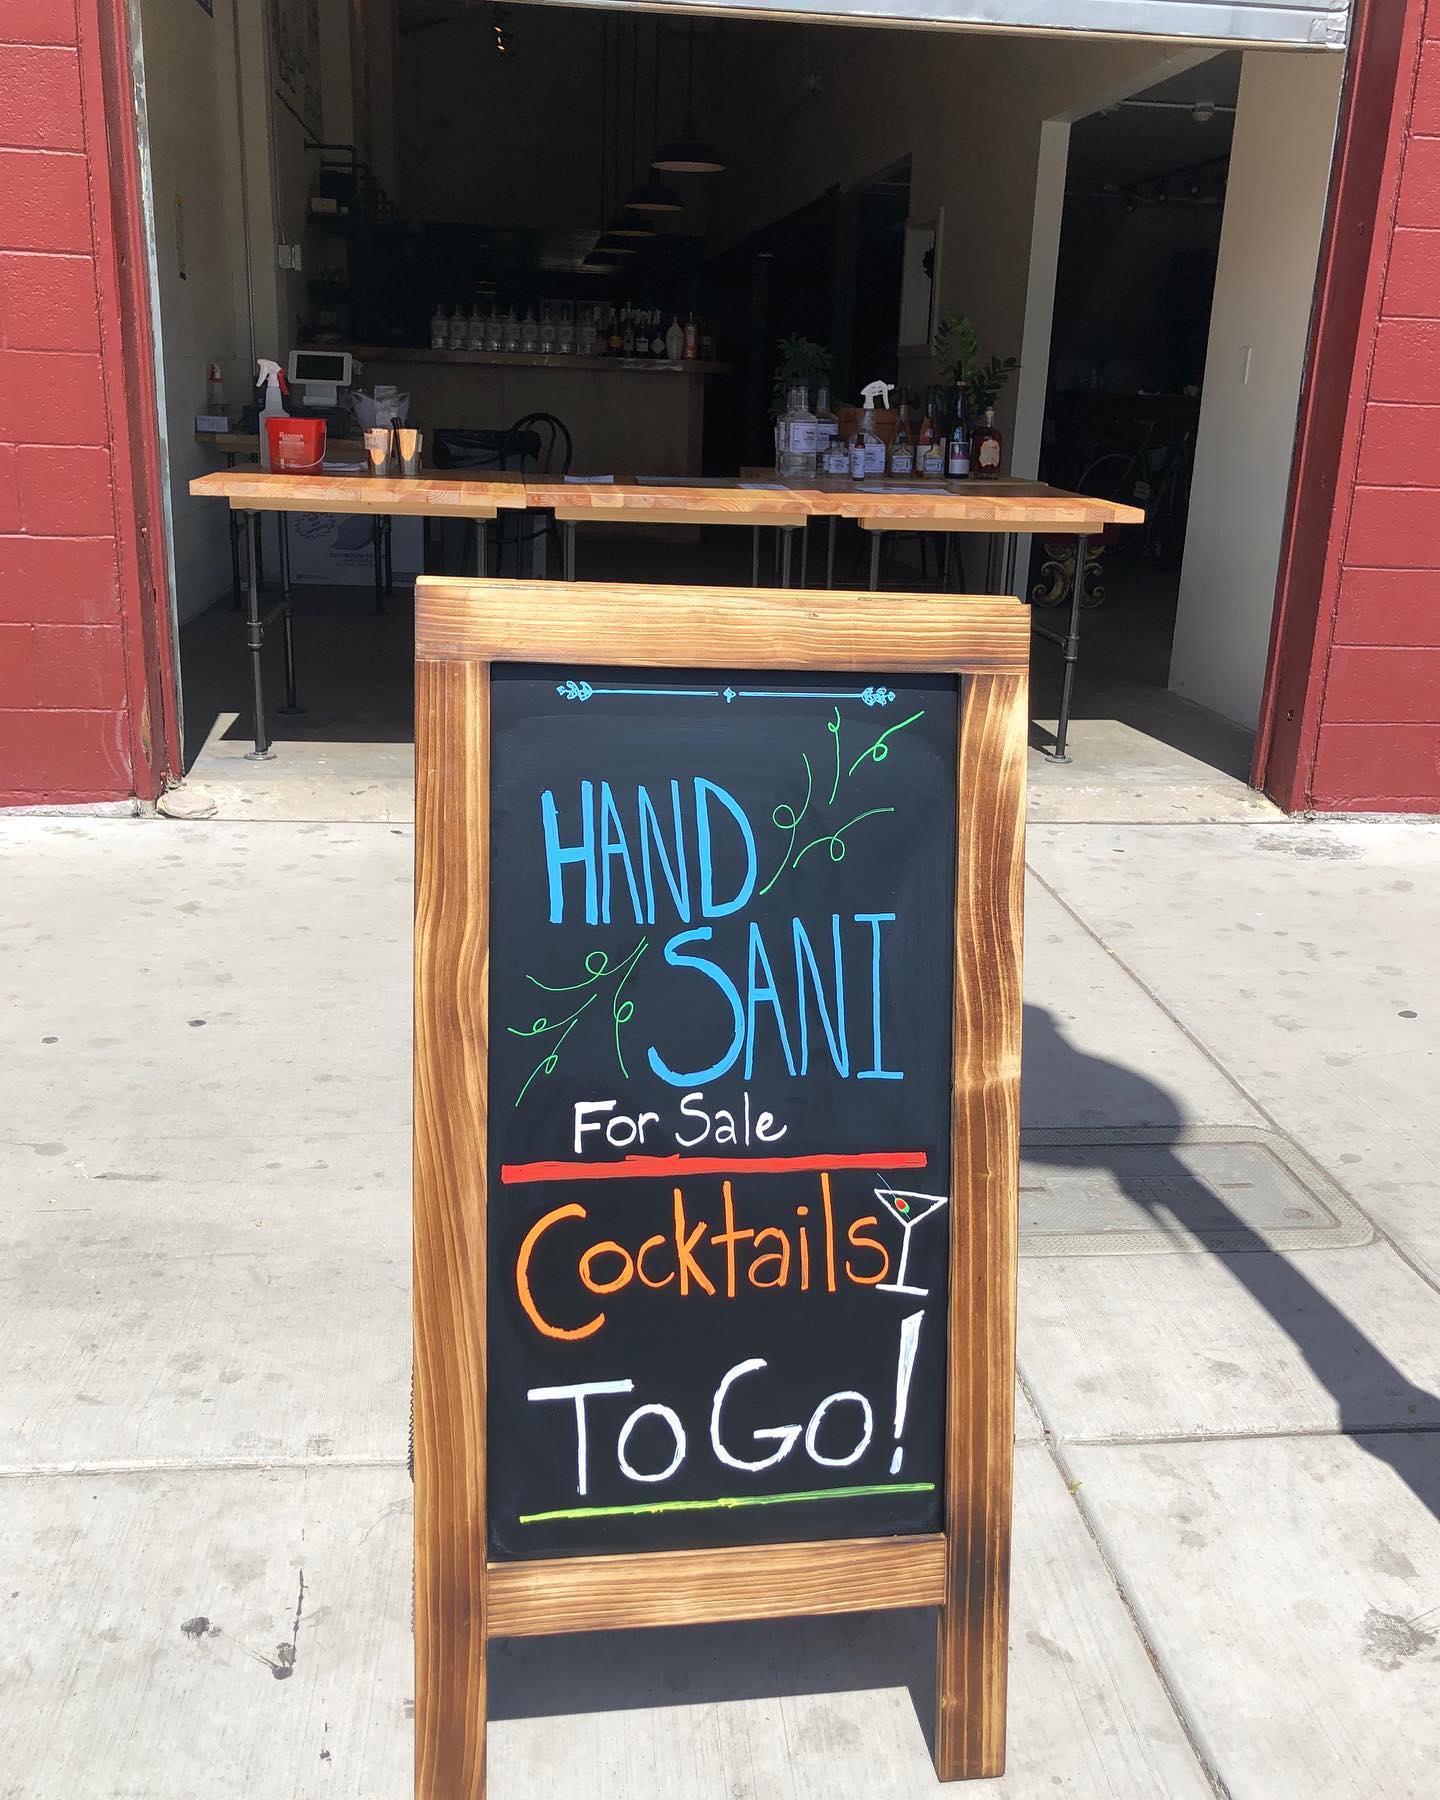 HAND
SANI
For Sale
Cocktails
To Go!